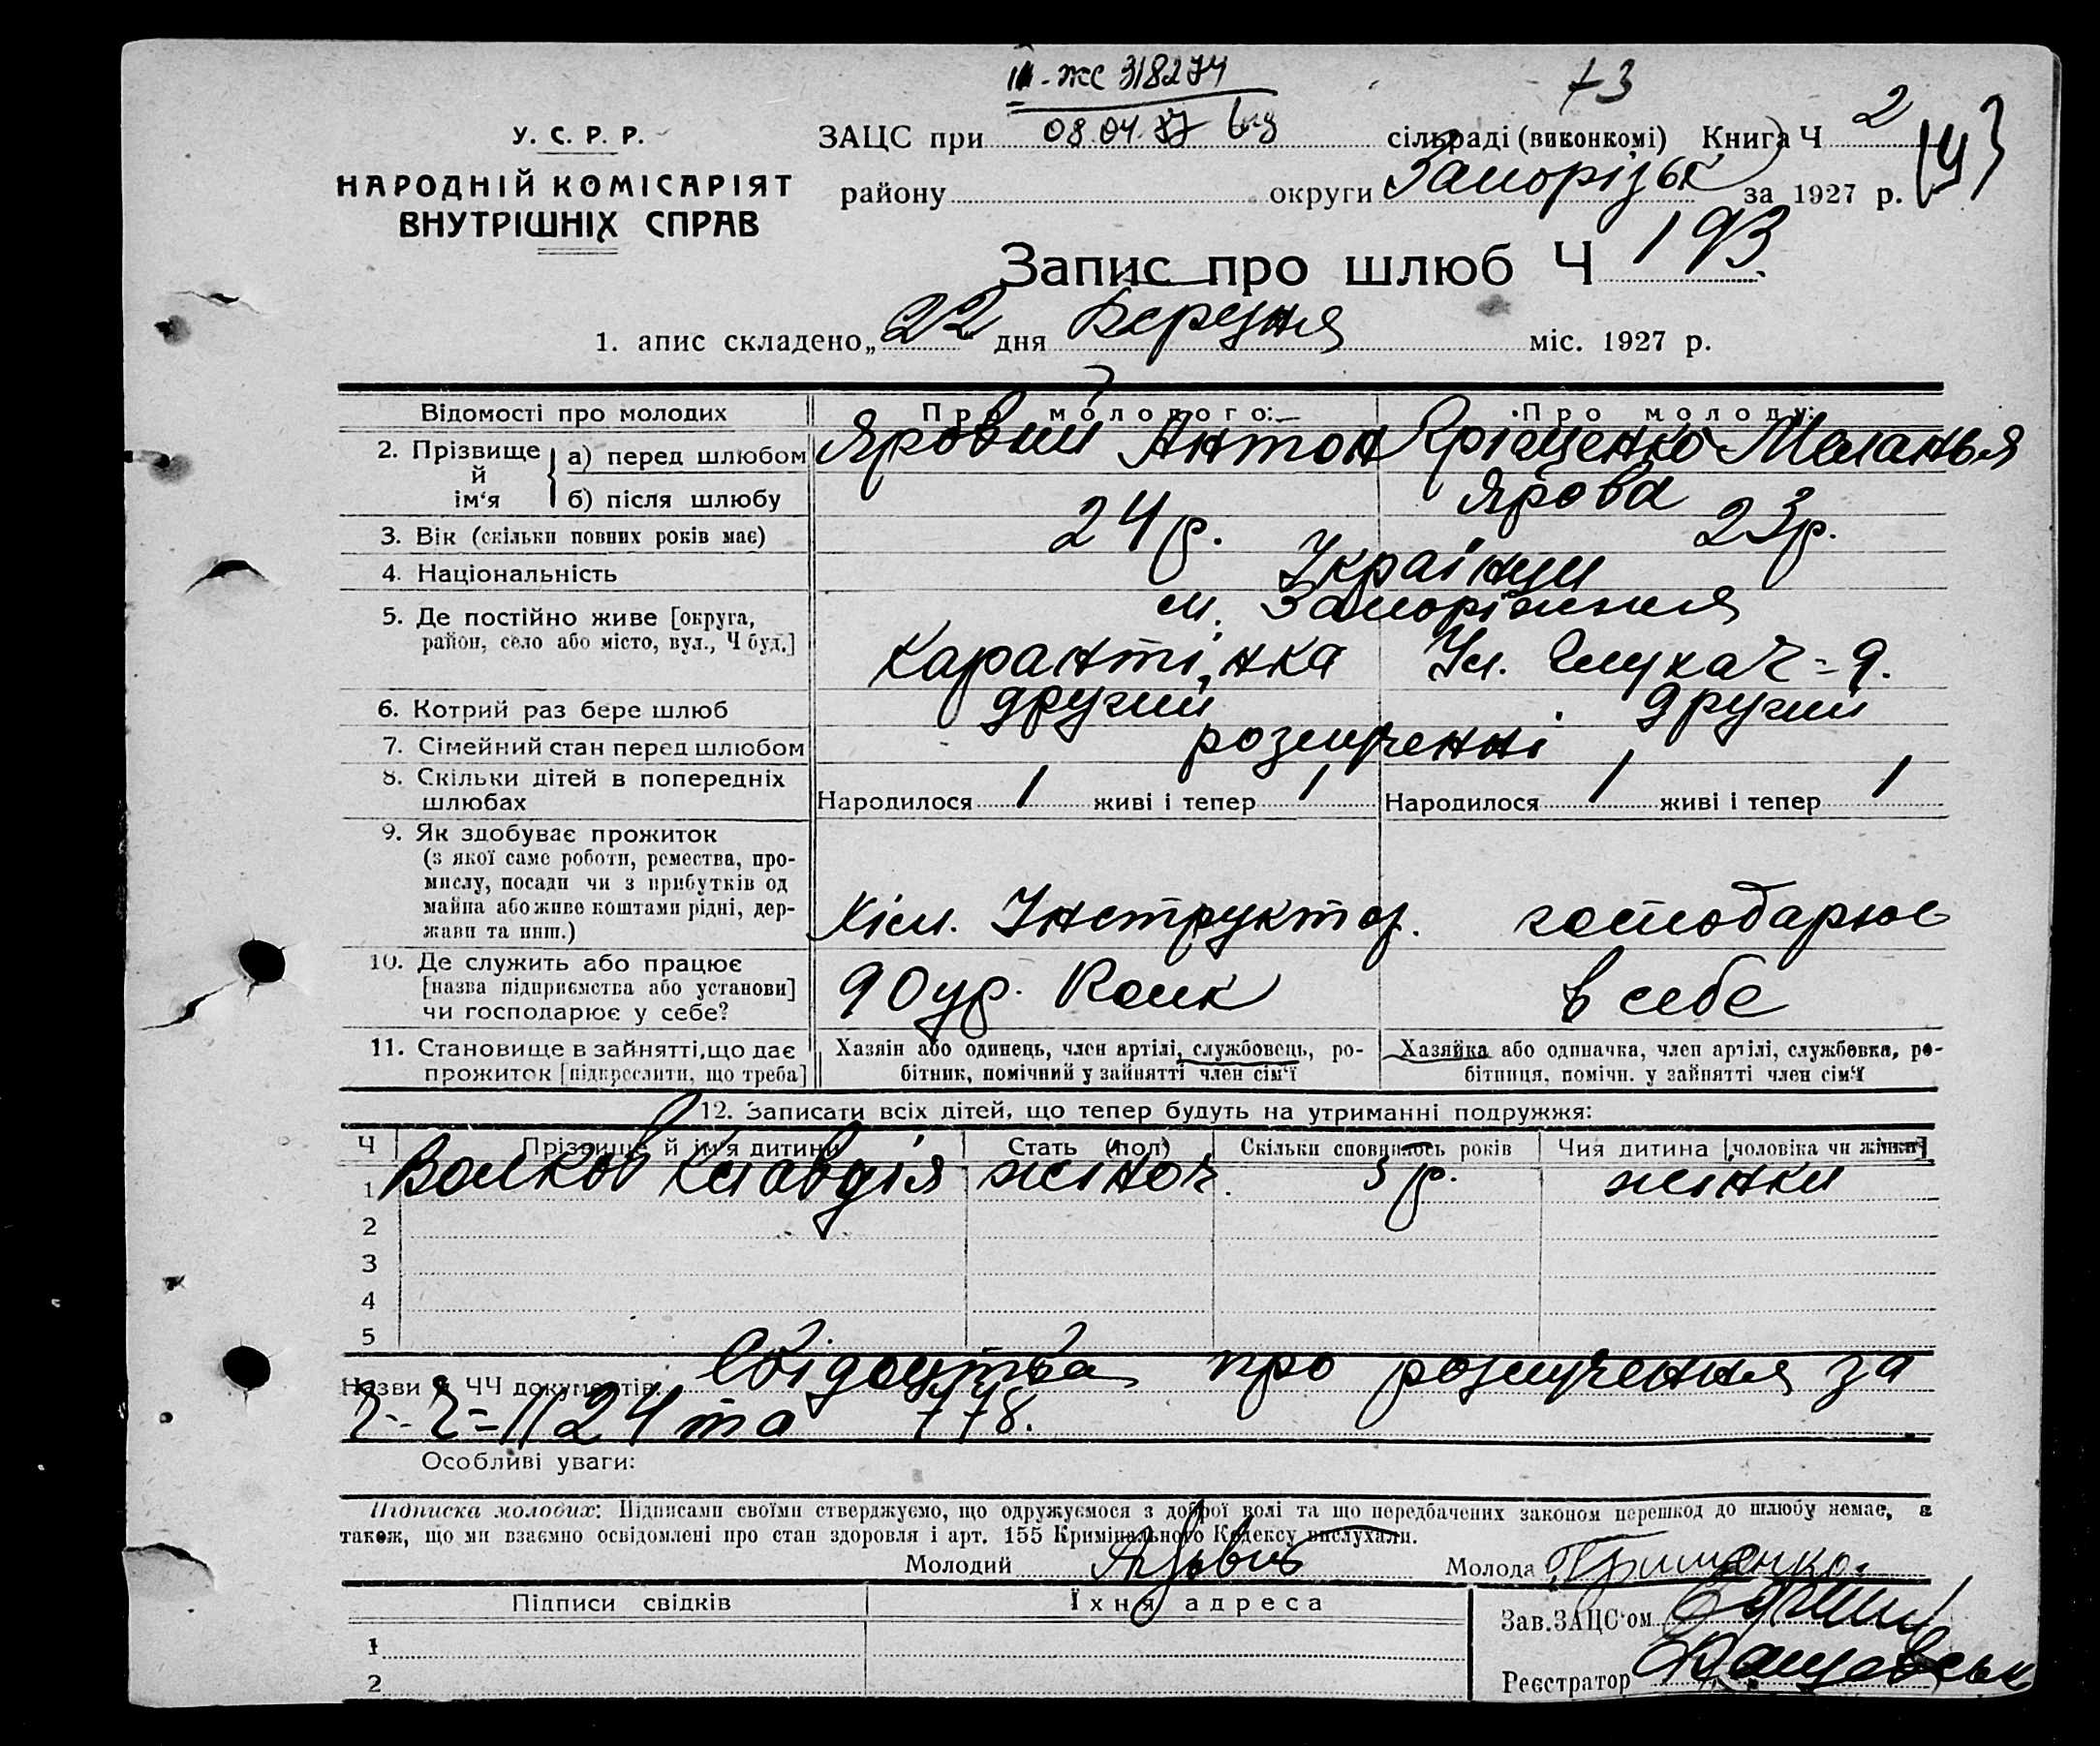 III-ЖС 318274
73
У. С. Р. Р.
НАРОДНІЙ КОМІСАРІЯТ
ВНУТРІШНІХ СПРАВ
ЗАЦС при 08.04.77 сільраді (виконкомі) Книга Ч 2
району округи Запорізьк за 1927 р.
193
Запис про шлюб Ч 193
1. апис складено „22 дня Березня міс. 1927 р.
Відомості про молодих Про молодого: Про молоду:
2. Прізвище й ім'я а) перед шлюбом Яровий Антон Меланья
б) після шлюбу Ярова
3. Вік (скільки повних років має) 24 р. 23 р.
4. Національність Українці
5. Де постійно живе [округа, район, село або місто, вул., Ч буд.] м. Запоріжжя
Карантінка Ул. Ч = 9.
6. Котрий раз бере шлюб другий другий
7. Сімейний стан перед шлюбом розлученні
8. Скільки дітей в попередніх шлюбах Народилося 1 живі і тепер 1 Народилося 1 живі і тепер 1
9. Як здобуває прожиток
(з якої саме роботи, ремества, промислу, посади чи з прибутків од майна або живе коштами рідні, держави та инш.) Хім. Інструктор. господарює
10. Де служить або працює
[назва підприємства або установи]
чи господарює у себе? 90 в себе
11. Становище в зайнятті, що дає прожиток [підкреслити, що треба] Хазяін або одинець, член артілі, службовець, робітник, помічний у зайнятті член сім'ї Хазяйка або одиначка, член артілі, службовка, робітниця, помічн. у зайнятті член сім'ї
12. Записати всіх дітей, що тепер будуть на утриманні подружжя:
Ч Прізвище й ім'я дитини Стать (пол) Скільки сповнилось років Чия дитина [чоловіка чи жінки]
1 Волков Клавдія жіноч. 5 р. жінки
2
3
4
5
Назви й ЧЧ документів: Свідоцтва про розлучення за
Ч-Ч = 1124 та 778.
Особливі уваги:
Підписка молодих: Підписами своїми стверджуємо, що одружуємося з доброї волі та що передбачених законом перешкод до шлюбу немає, а
також, що ми взаємно освідомлені про стан здоровля і арт. 155 Кримінального Кодексу вислухали.
Молодий Молода
Підписи свідків Їхня адреса
Зав. ЗАЦС'ом
1
2
Реєстратор